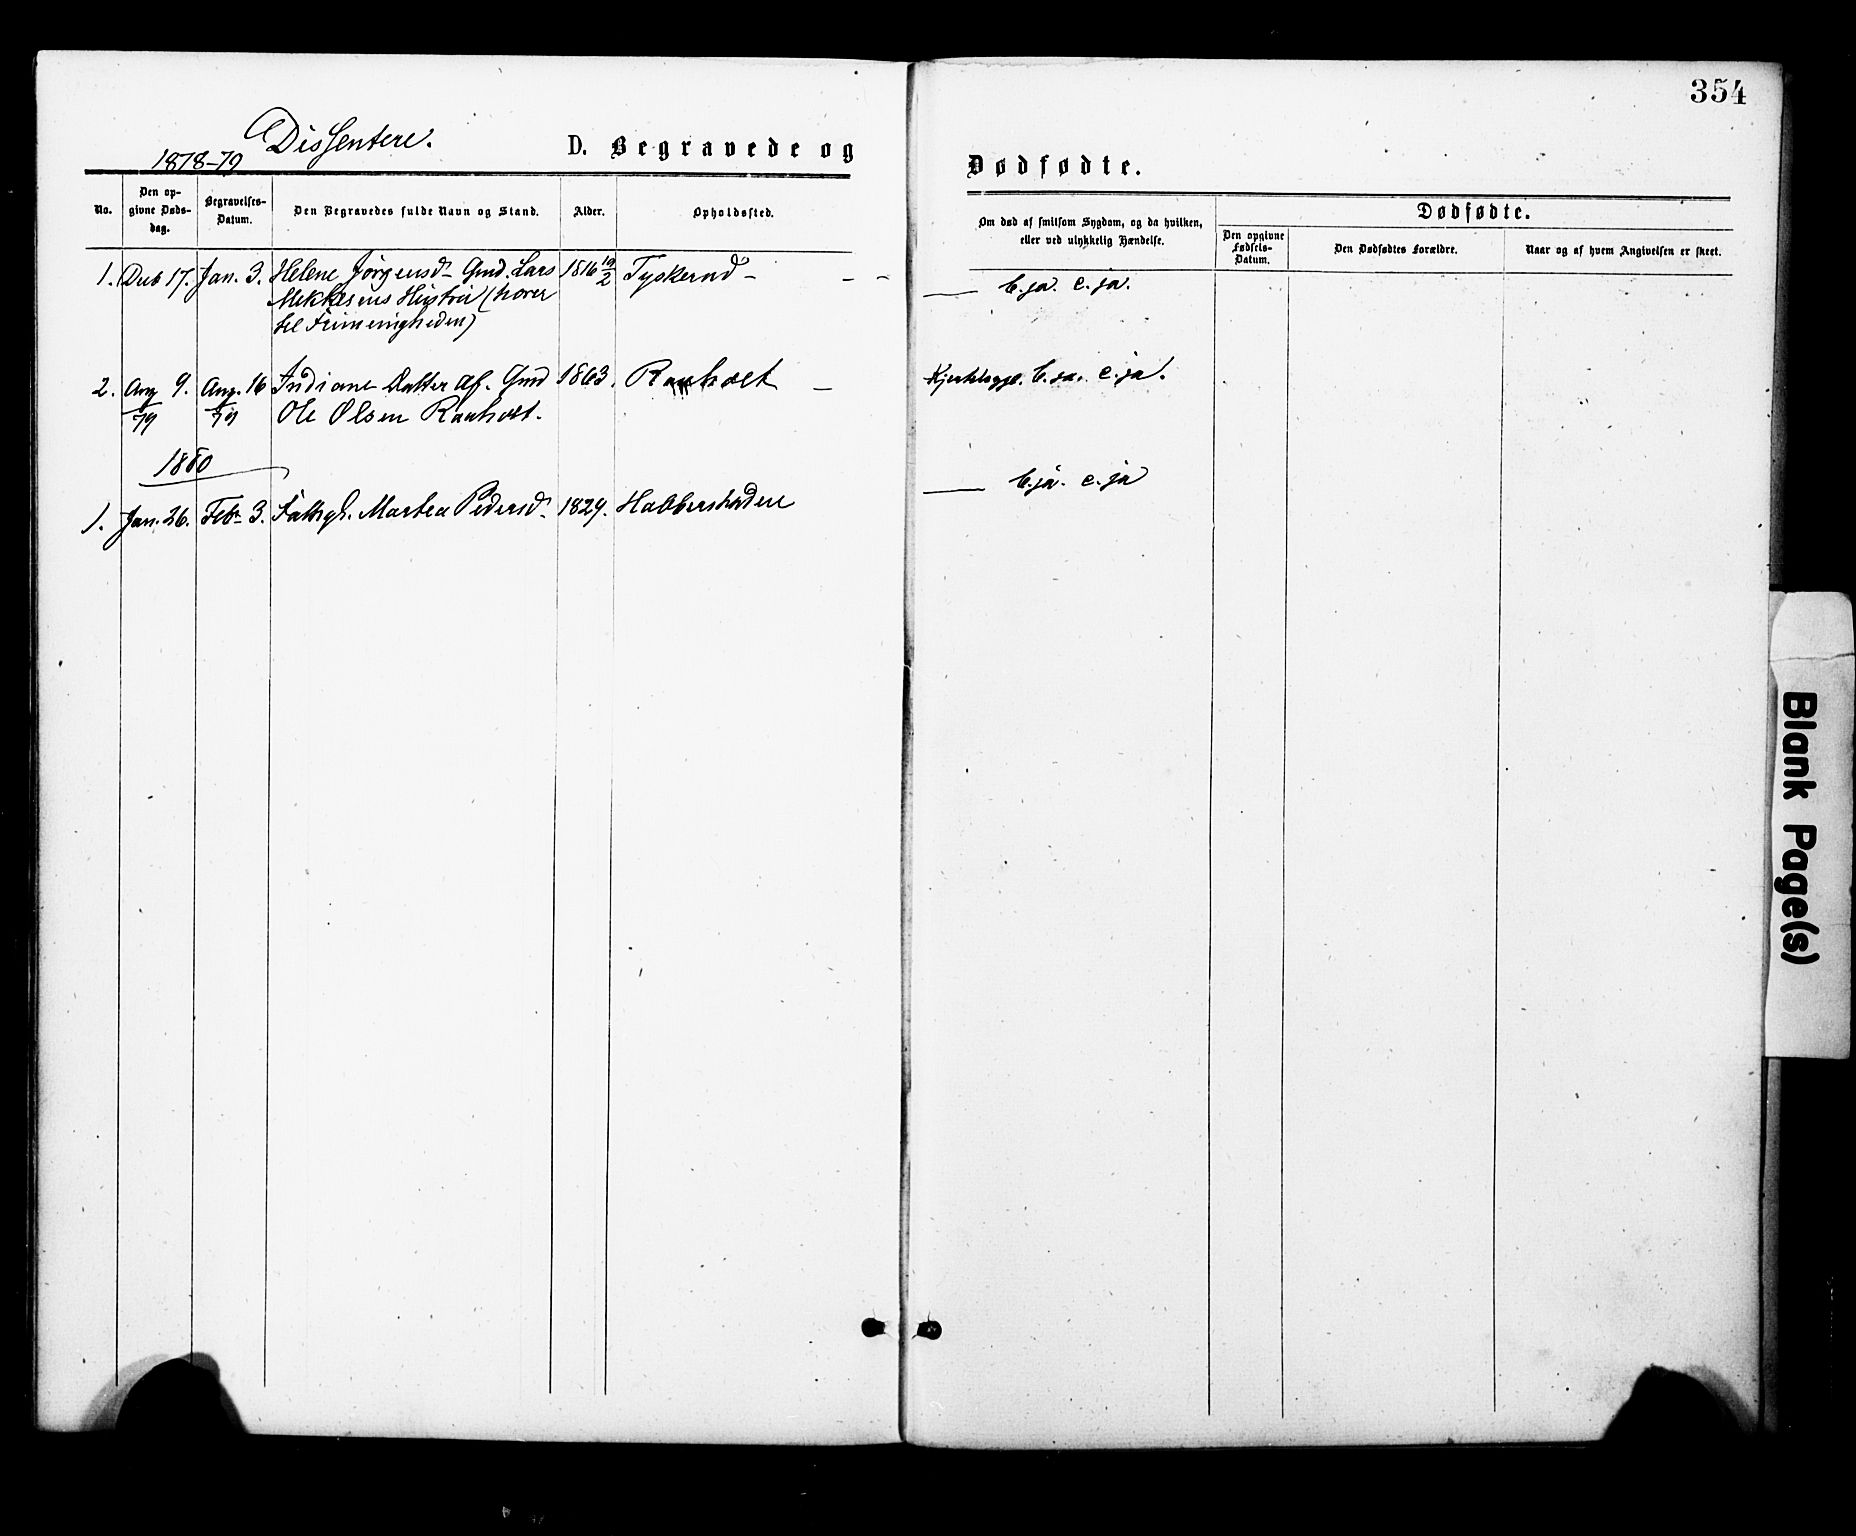 354
Dissentere.
1878–79
D. Begravede og Dødfødte.
No.
Den op-
givne Døds-
dag.
Begravelses-
Datum.
Den Begravedes fulde Navn og Stand.
Alder.
Opholdssted.
Om død af smitsom Sygdom, og da hvilken,
eller ved ulykkelig Hændelse.
Dødfødte.
Den opgivne
Fødsels-
Datum.
Den Dødfødtes Forældre.
Naar og af hvem Angivelsen er skeet.
1. 17. Jan. 3. Helene Jørgensd– Gmd. Lars 1816 19/2 – – — b. ja. c. ja.
Hustru (hører
til Frimenigheden)
2. Aug 9. Aug. 16 Indiane Datter af Gmd 1863. Raaholt – b. ja. c. ja.
79 79 Ole Olsen Raaholt.
1880
1. Jan. 26. Feb. 3. Fattigl. Marthea Pedersd– 1829. — b. ja. c. ja
Blank Page(s)